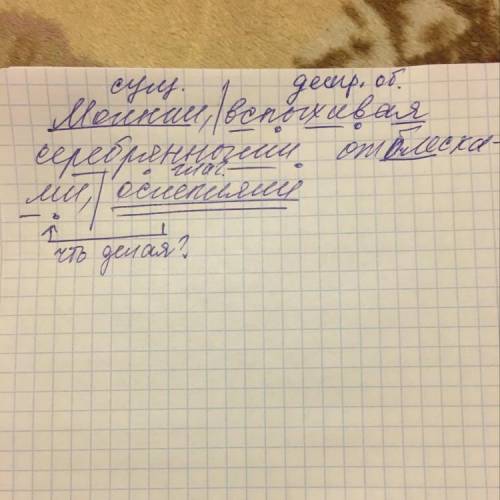 сущ. деепр. об.
Молнии, вспыхивая
серебрянными отблеска-
глаг.
ми, ослепляли
что делая?